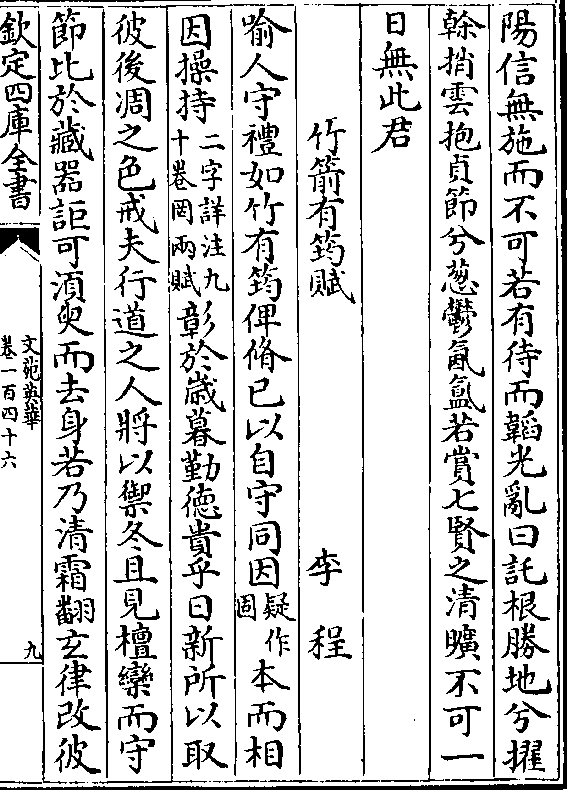 陽信無施而不可若有待而韜光亂曰託根勝地兮擢
榦捎雲抱貞節兮葱鬱氤氲若賞七賢之清曠不可一
日無此君
竹箭有筠賦
李程
喻人守禮如竹有筠俾脩已以自守同因疑作固本而相
因操持二字詳注九十卷罔兩賦彰於歳暮勤徳貴乎日新所以取
彼後凋之色戒夫行道之人將以禦冬且見檀欒而守
節比於藏器詎可湏臾而去身若乃清霜翻玄律改彼
欽定四庫全書
文苑英華
卷一百四十六
九